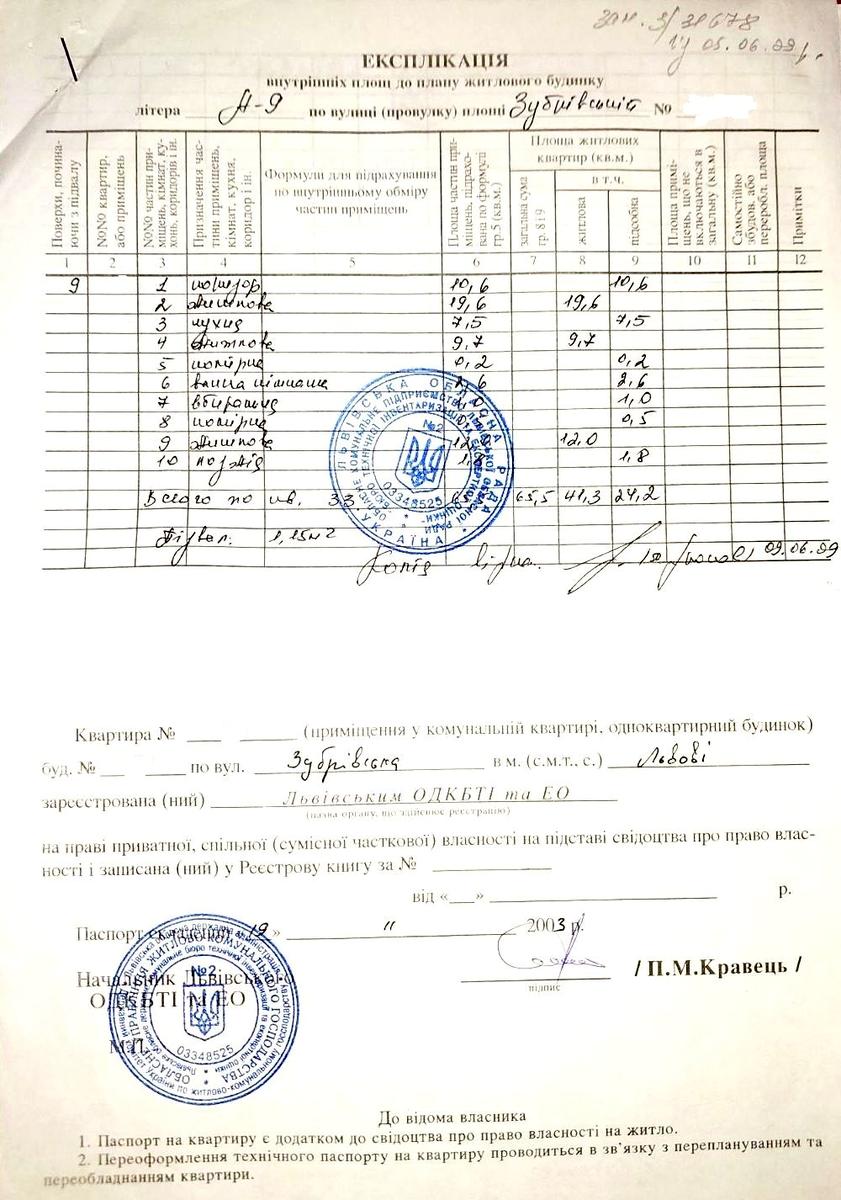 зам. 3/31678
від 05.06.09 р.
ЕКСПЛІКАЦІЯ
внутрішніх площ до плану житлового будинку
літера А-9 по вулиці (провулку) площі Зубрівській №
Поверхи, починаючи з підвалу
№№ квартир, або приміщень
№№ частин приміщень, кімнат, кухонь, коридорів і ін.
Призначення частини приміщень, кімнат, кухня, коридор і ін.
Формули для підрахування по внутрішньому обміру частин приміщень
Площа частин приміщень, підрахована по формулі гр.5 (кв.м.)
Площа житлових квартир (кв.м.)
загальна сума гр. 8 і 9
в т.ч.
житлова
підсобна
Площа приміщень, що не включаються в загальну (кв.м.)
Самостійно збудов. або переробл. площа
Примітки
1 2 3 4 5 6 7 8 9 10 11 12
9 1 коридор 10,6 10,6
2 житлова 19,6 19,6
3 кухня 7,5 7,5
4 житлова 9,7 9,7
5 комірка 0,2 0,2
6 ванна кімната 2,6 2,6
7 вбиральня 1,0
8 комірка 0,5
9 житлова 12,0
10 лоджія 1,8 1,8
Всього по кв. 33 65,5 41,3 24,2
Підвал: 1,15м2
Копія вірна. 09.06.09
ЛЬВІВСЬКА ОБЛАСНА РАДА
УКРАЇНА
№2
03348525
Квартира № (приміщення у комунальній квартирі, одноквартирний будинок)
буд. № по вул. Зубрівська в м. (с.м.т., с.) Львові
зареєстрована (ний) Львівським ОДКБТІ та ЕО
(назва органу, що здійснює реєстрацію)
на праві приватної, спільної (сумісної часткової) власності на підставі свідоцтва про право влас-
ності і записана (ний) у Реєстрову книгу за №
від «__» р.
Паспорт складений 19 » " 2003 р.
Начальник Львівського
ОДКБТІ та ЕО
/ П.М.Кравець /
підпис
М.П.
ОБЛАСНЕ УПРАВЛІННЯ ЖИТЛОВО-КОМУНАЛЬНОГО ГОСПОДАРСТВА
№2
03348525
До відома власника
1. Паспорт на квартиру є додатком до свідоцтва про право власності на житло.
2. Переоформлення технічного паспорту на квартиру проводиться в зв'язку з переплануванням та
переобладнанням квартири.